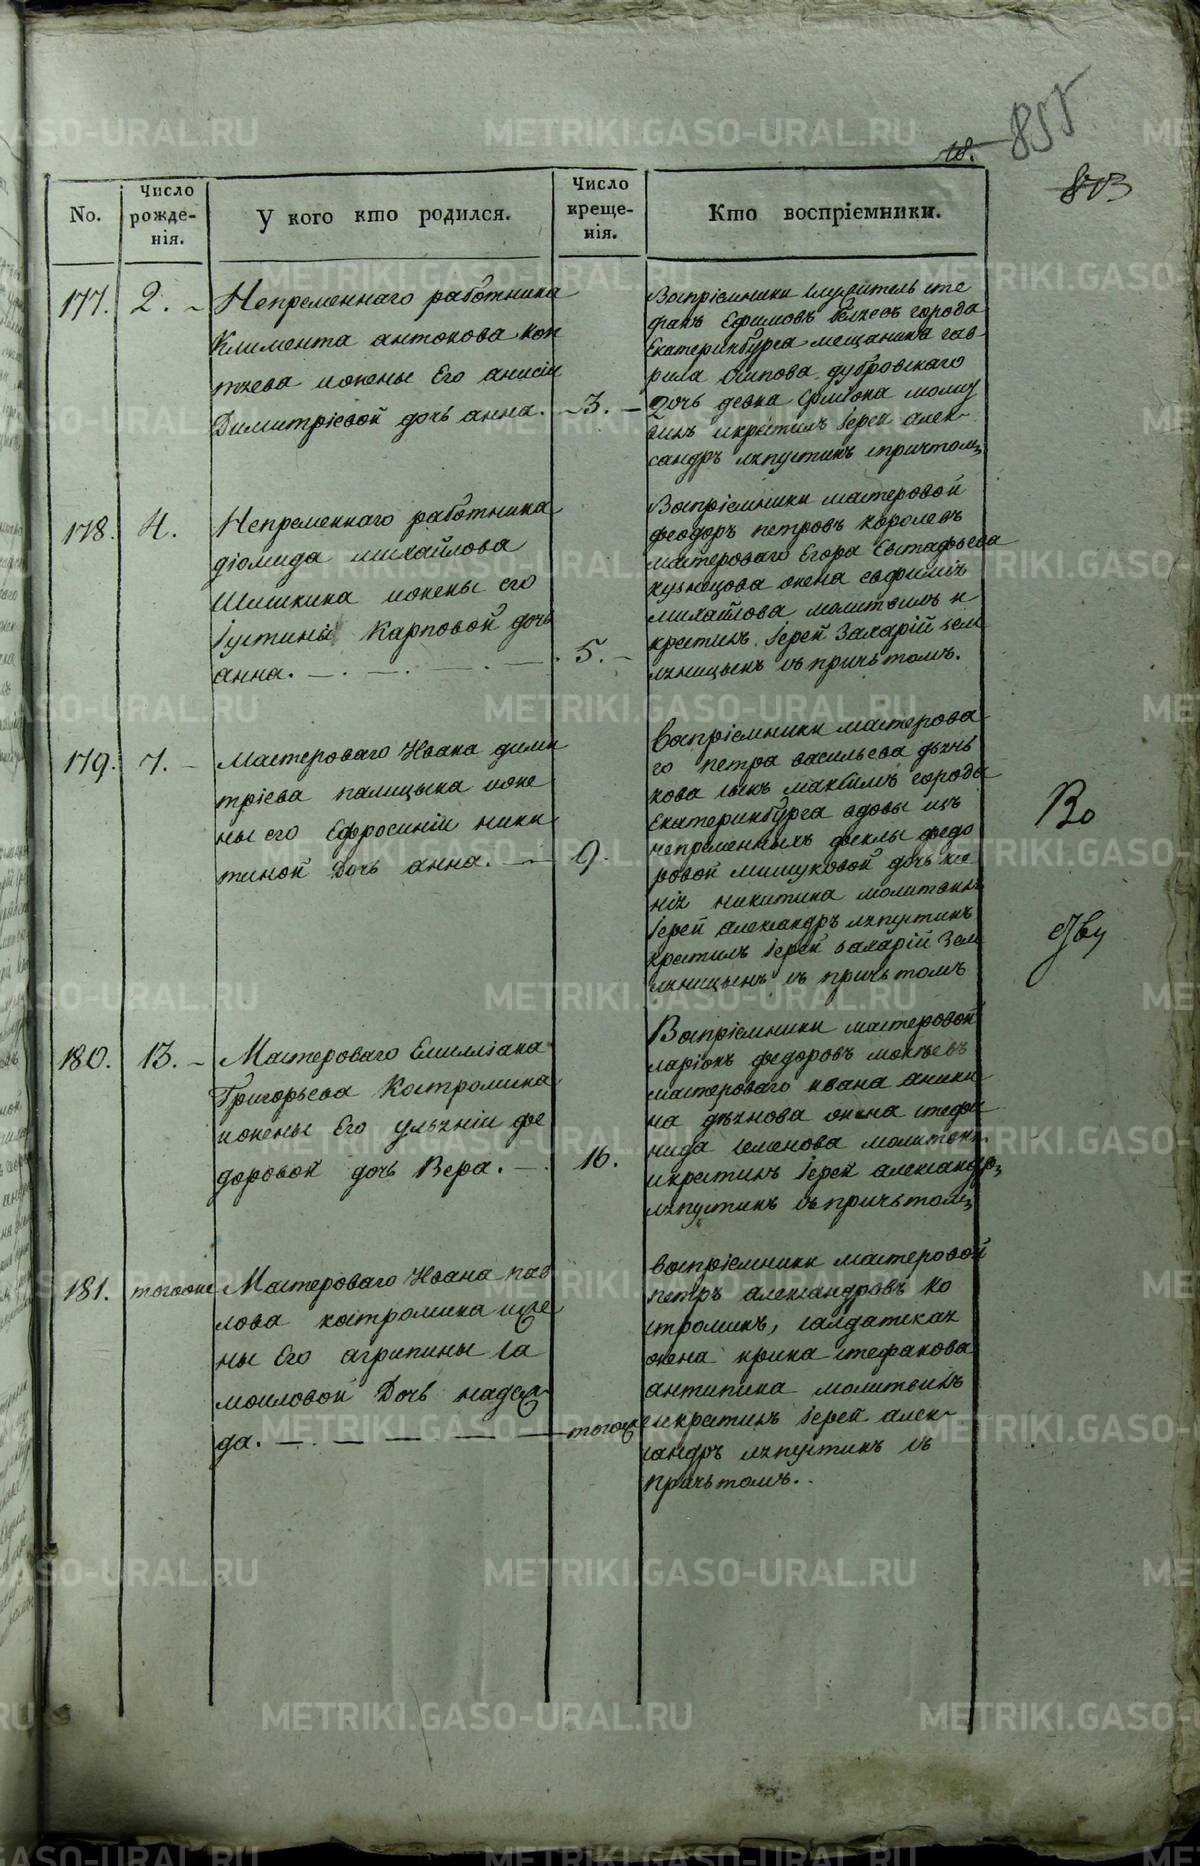 855
18.
873
No.
Число рожде-нія.
У кого кто родился.
Число креще-нія.
Кто воспріемники.
177.
2. -
Непременнаго работника
Климента антонова коп
тяева ижены Его анисіи
Димитріевой дочь анна.
3. -
Воспріемники служитель сте
фанъ Ефимовъ города
Екатеринбурга мещанина гав
рила Осипова дубровскаго
дочь девка молит
вилъ икрестилъ Іерей алек
сандръ ляпустинъ спричтомъ
178.
4.
Непременнаго работника
діомида михайлова
Шишкина ижены его
Іустиніи Карповой дочь
анна. -
5. -
Воспріемники мастеровой
феодоръ петровъ королевъ
мастероваго Егора Евстафьева
кузнецова жена евфимія
михайлова молитвилъ и
крестилъ Іерей Захарій зем
ляницынъ съ причьтомъ.
179.
7. -
Мастероваго Ивана дими
трієва палицына ижe
ны его Ефросиніи ники
тиной Дочь анна. -
9.
Воспріемники мастерова
го петра васильева
кова сынъ максимъ города
Екатеринбурга вдовы изъ
непременныхъ феклы федо
ровой мишуковой дочь ксе
нія никитина молитвилъ
Іерей александръ ляпустинъ
крестилъ Іерей захарій Зем
ляницынъ съ причьтомъ
Во
180.
13. -
Мастероваго Емилліана
Григорьева Костромина
ижены Его ульяніи фе
доровой дочь Вера. -
16.
Воспріемники мастеровой
ларіонъ федоровъ мокеевъ
мастероваго ивана аники
на жена стефа
нида семенова молитвилъ
икрестилъ Іерей александръ
ляпустинъ съ причьтомъ
181.
тогоже
Мастероваго Ивана пав
лова костромина иже
ны Его агрипины са
мойловой Дочь надеж
да. -
тогоже
воспріемники мастеровой
петръ александровъ ко
стромин, салдатская
жена ирина стефанова
антипина молитвилъ
икрестилъ Іерей алек
сандръ ляпустинъ съ
причьтомъ.
METRIKI.GASO-URAL.RU